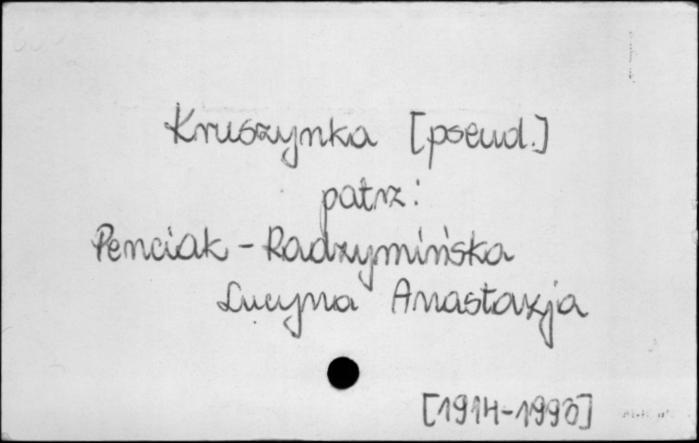 Kruszynka [pseud.]
patrz:
Penciak-Radzymińska
Lucyna Anastazja
[1914-1990]